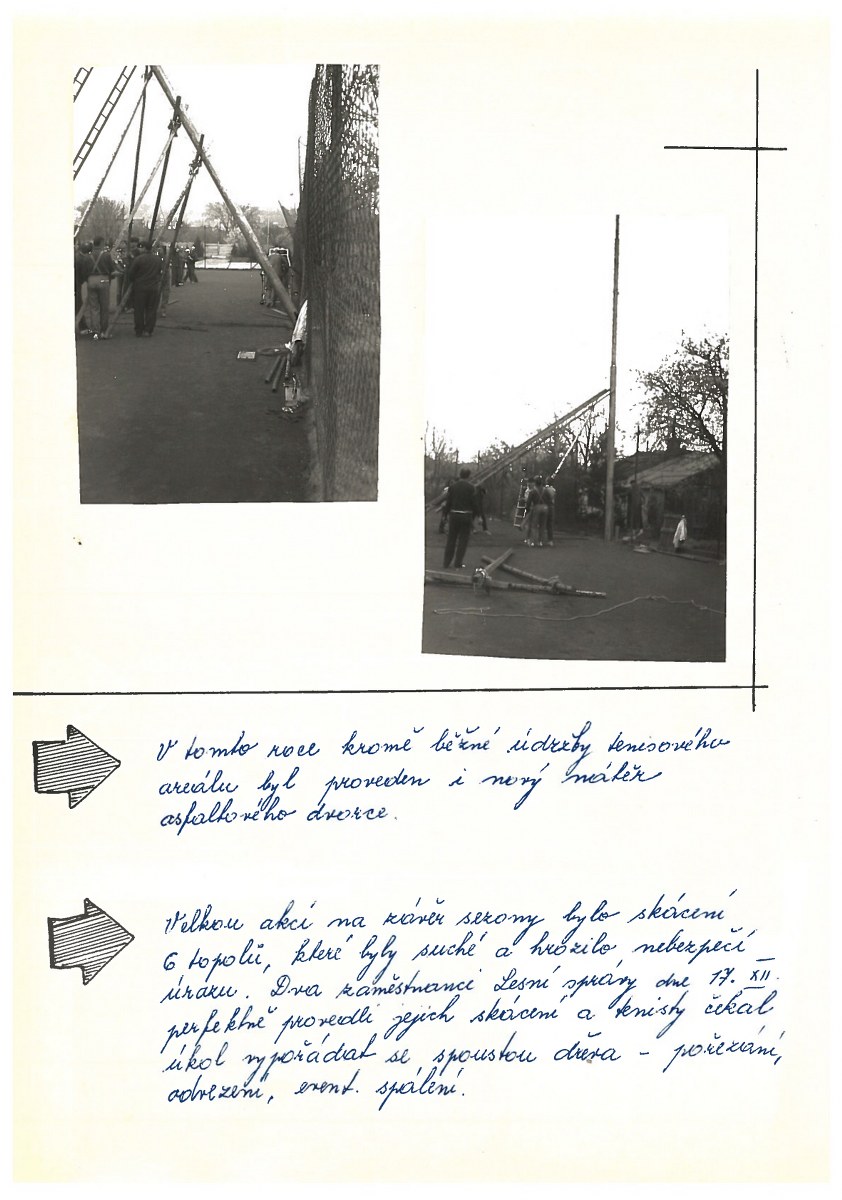 V tomto roce kromě běžné údržby tenisového
areálu byl proveden i nový nátěr
asfaltového dvorce.
Velkou akcí na závěr sezony bylo skácení
6 topolů, které byly suché a hrozilo nebezpečí
úrazu. Dva zaměstnanci Lesní správy dne 17. XII.
perfektně provedli jejich skácení a tenisty čekal
úkol vypořádat se spoustou dřeva - pořezání,
odvezení, event. spálení.